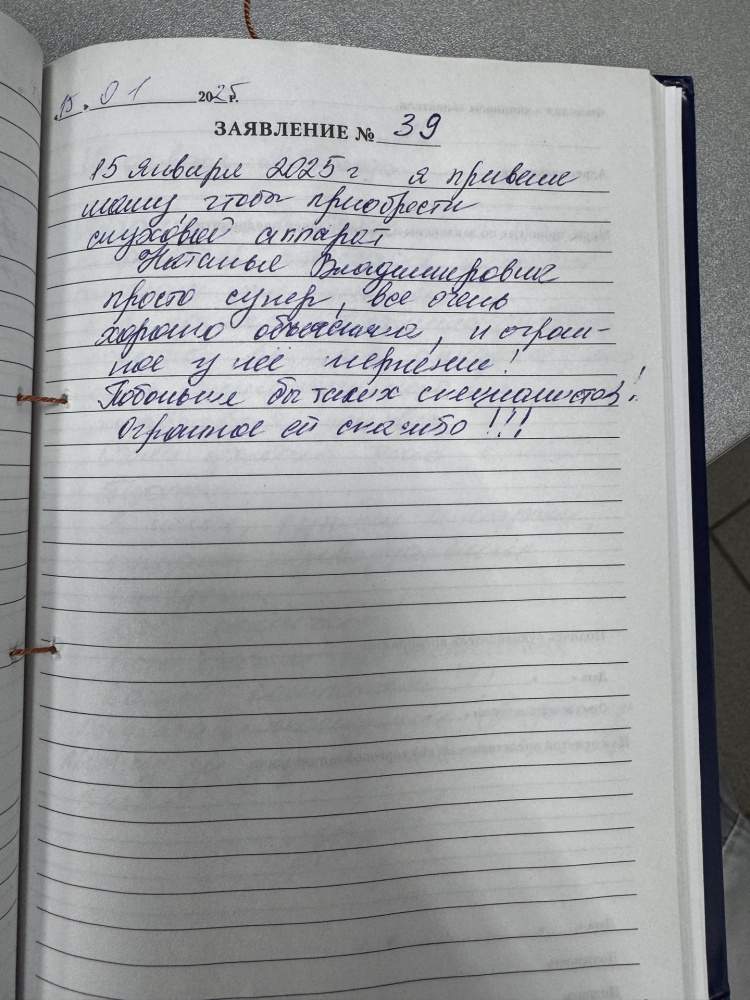 15.01 2025 г.
ЗАЯВЛЕНИЕ № 39
15 января 2025 г я привела
маму, чтобы приобрести
слуховой аппарат
Наталья Владимировна
просто супер, все очень
хорошо объяснила, и огром-
ное у неё терпение!
Побольше бы таких специалистов!
Огромное ей спасибо!!!